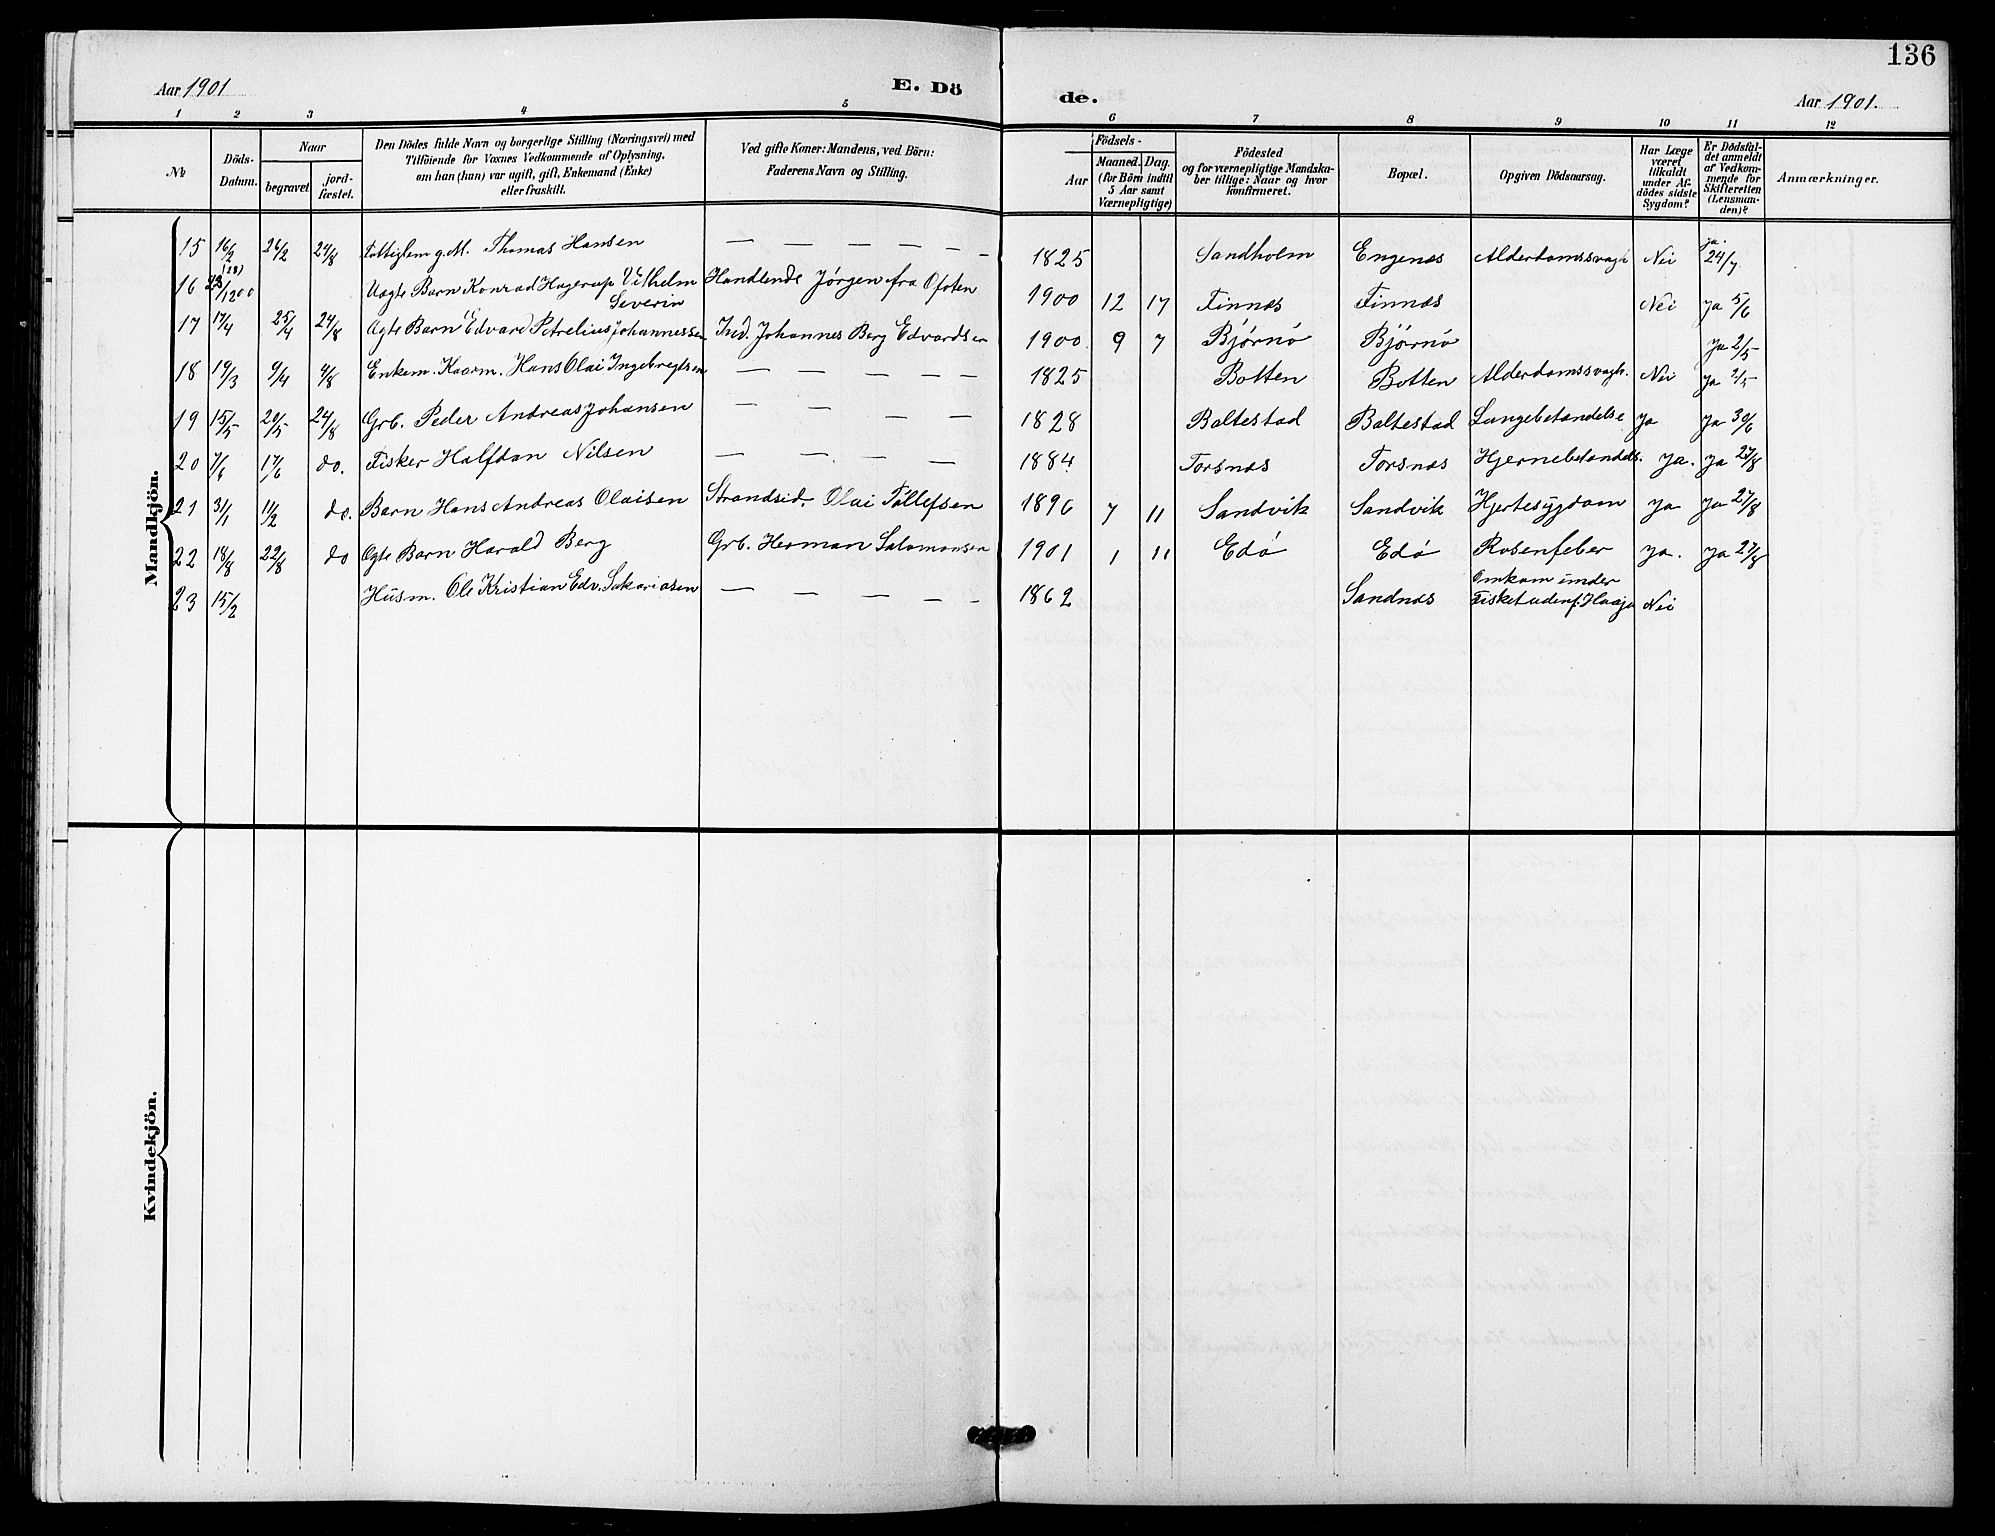 136
Aar 1901 E. Dö de. Aar 1901.
1 2 3 4 5 6 7 8 9 10 11 12
№
Döds-Datum.
Naar
begravet
jord-fæstet.
Den Dödes fulde Navn og borgerlige Stilling (Næringsvei) med
Tilföiende for Voxnes Vedkommende af Oplysning,
om han (hun) var ugift, gift, Enkemand (Enke)
eller fraskilt.
Ved gifte Koner: Mandens, ved Börn:
Faderens Navn og Stilling.
Födsels-
Aar
Maaned. Dag.
(for Börn indtil
5 Aar samt
Værnepligtige)
Födested
og for værnepligtige Mandska-
ber tillige: Naar og hvor
konfirmeret.
Bopæl.
Opgiven Dödsaarsag.
Har Læge
været
tilkaldt
under Af-
dödes sidste
Sygdom?
Er Dödsfal-
det anmeldt
af Vedkom-
mende for
Skifteretten
(Lensman-
den)?
Anmærkninger.
Mandkjön.
15 16/2 26/2 24/8 g.M. Thomas Hansen — — — — — 1825 Sandholm Engenæs Alderdomssvagh Nei ja. 24/7
16 1900 Uægte Barn Konrad Hagerup Vilhelm Severin Handlende Jørgen fra Ofoten 1900 12 17 Finnæs Finnæs Nei ja 5/6
17 17/4 25/4 24/8 Ægte Barn Edvard Petrelius Johannessen Ind. Johannes Berg Edvardsen 1900 9 7 Bjørnø Bjørnø ja 2/5
18 19/3 9/4 4/8 Enkem. Kaarm. Hans Olai Ingebregtsen — — — — — 1825 Botten Botten Alderdomssvagh. Nei ja 2/5
19 15/5 20/5 24/8 Grb. Peder Andreas Johansen — — — — 1828 Baltestad Baltestad Lungebetændelse ja ja 30/6
20 17/6 do. Fisker Halfdan Nilsen — — — — — 1884 Torsnæs Torsnæs Hjernebetændels. ja. ja 27/8
21 31/1 11/2 do. Barn Hans Andreas Olaisen Strandsid. Olai Tollefsen 1896 7 11 Sandvik Sandvik Hjertesygdom ja ja 27/8
22 18/8 22/8 do Ægte Barn Harald Berg Grb. Herman Salamonsen 1901 1 11 Edø Edø Rosenfeber ja. ja 27/8
23 15/2 Husm. Ole Kristian Edv. Sakariasen — — — — — 1862 Sandnæs Omkom under Fisket udenf. Nei
Kvindekjön.